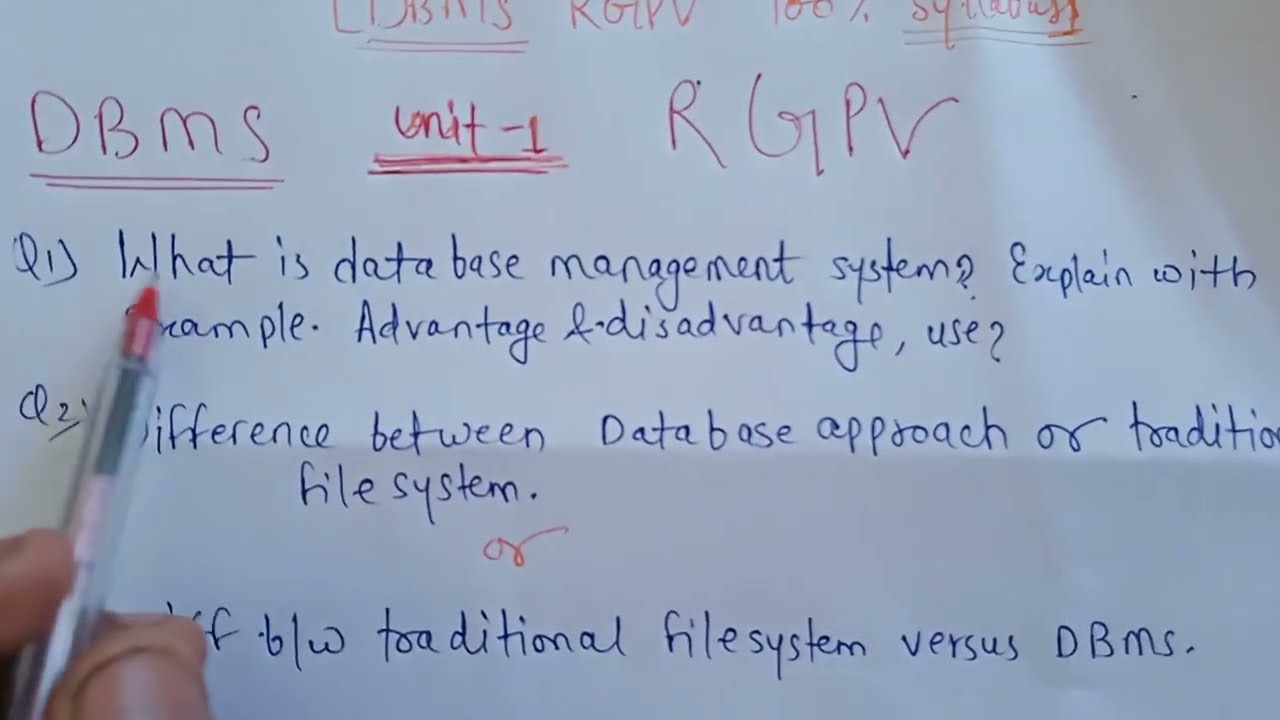 [DBMS RGPV 100% syllabus]
DBMS unit-1 RGPV
Q1) What is database management system? Explain with
Example. Advantage & disadvantage, use?
Q2) Difference between Database approach or
file system.
or
b/w traditional filesystem versus DBMS.